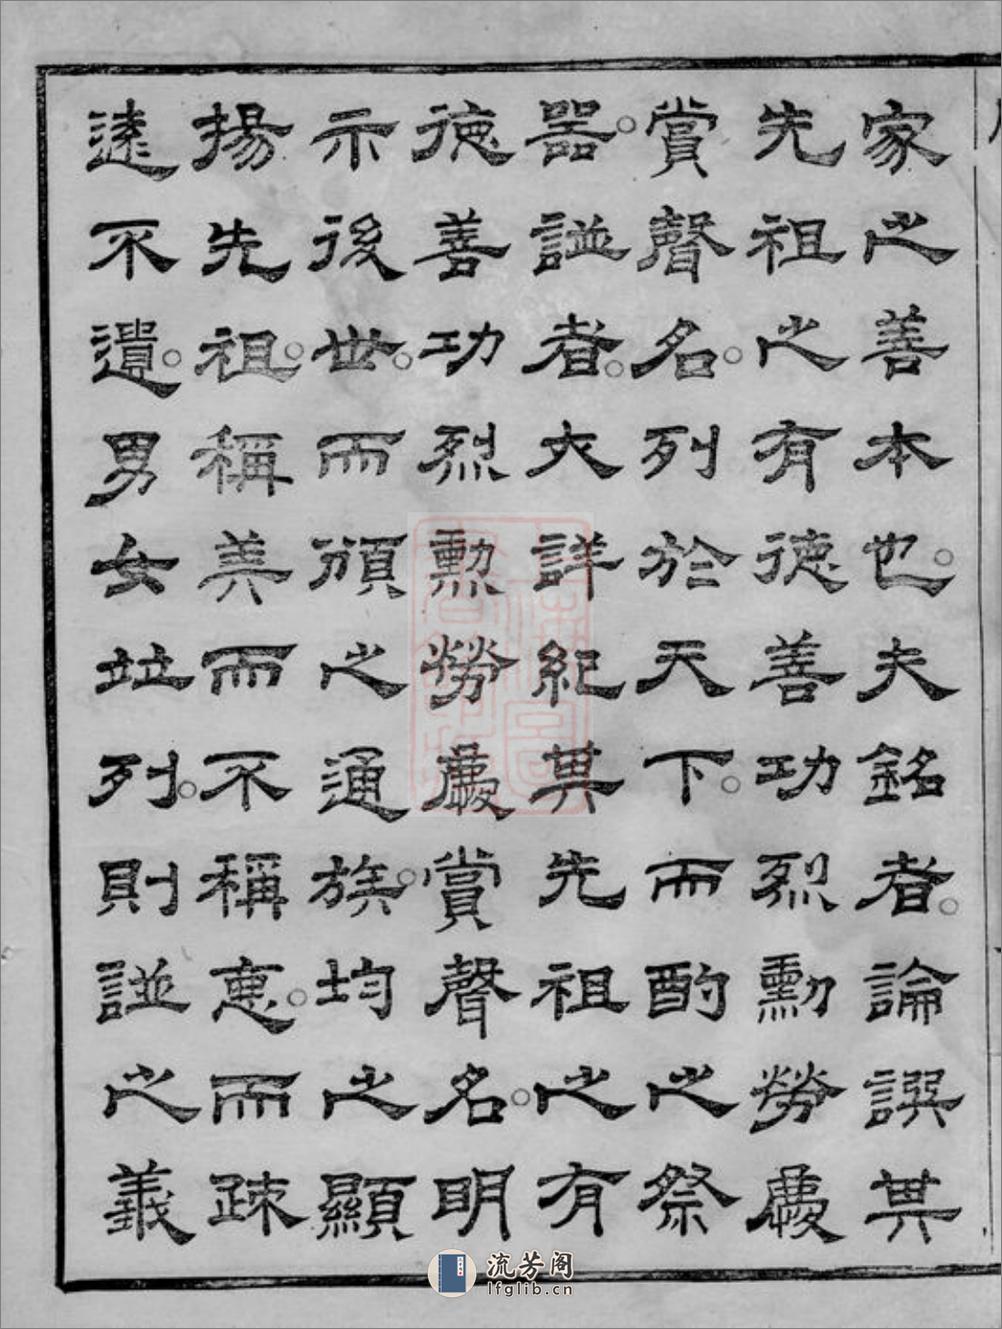 家之善本也。夫銘者。論譔其
先祖之有德善功烈勳勞慶
賞聲名。列於天下。而酌之祭
器。諡者。大詳紀其先祖之有
德善功烈勳勞慶賞聲名。明
示後世。而頒之通族。均之顯
揚先祖。稱美而不稱惡。而疎
遠不遺。男女竝列。則諡之義
流芳阁
lfglib.cn